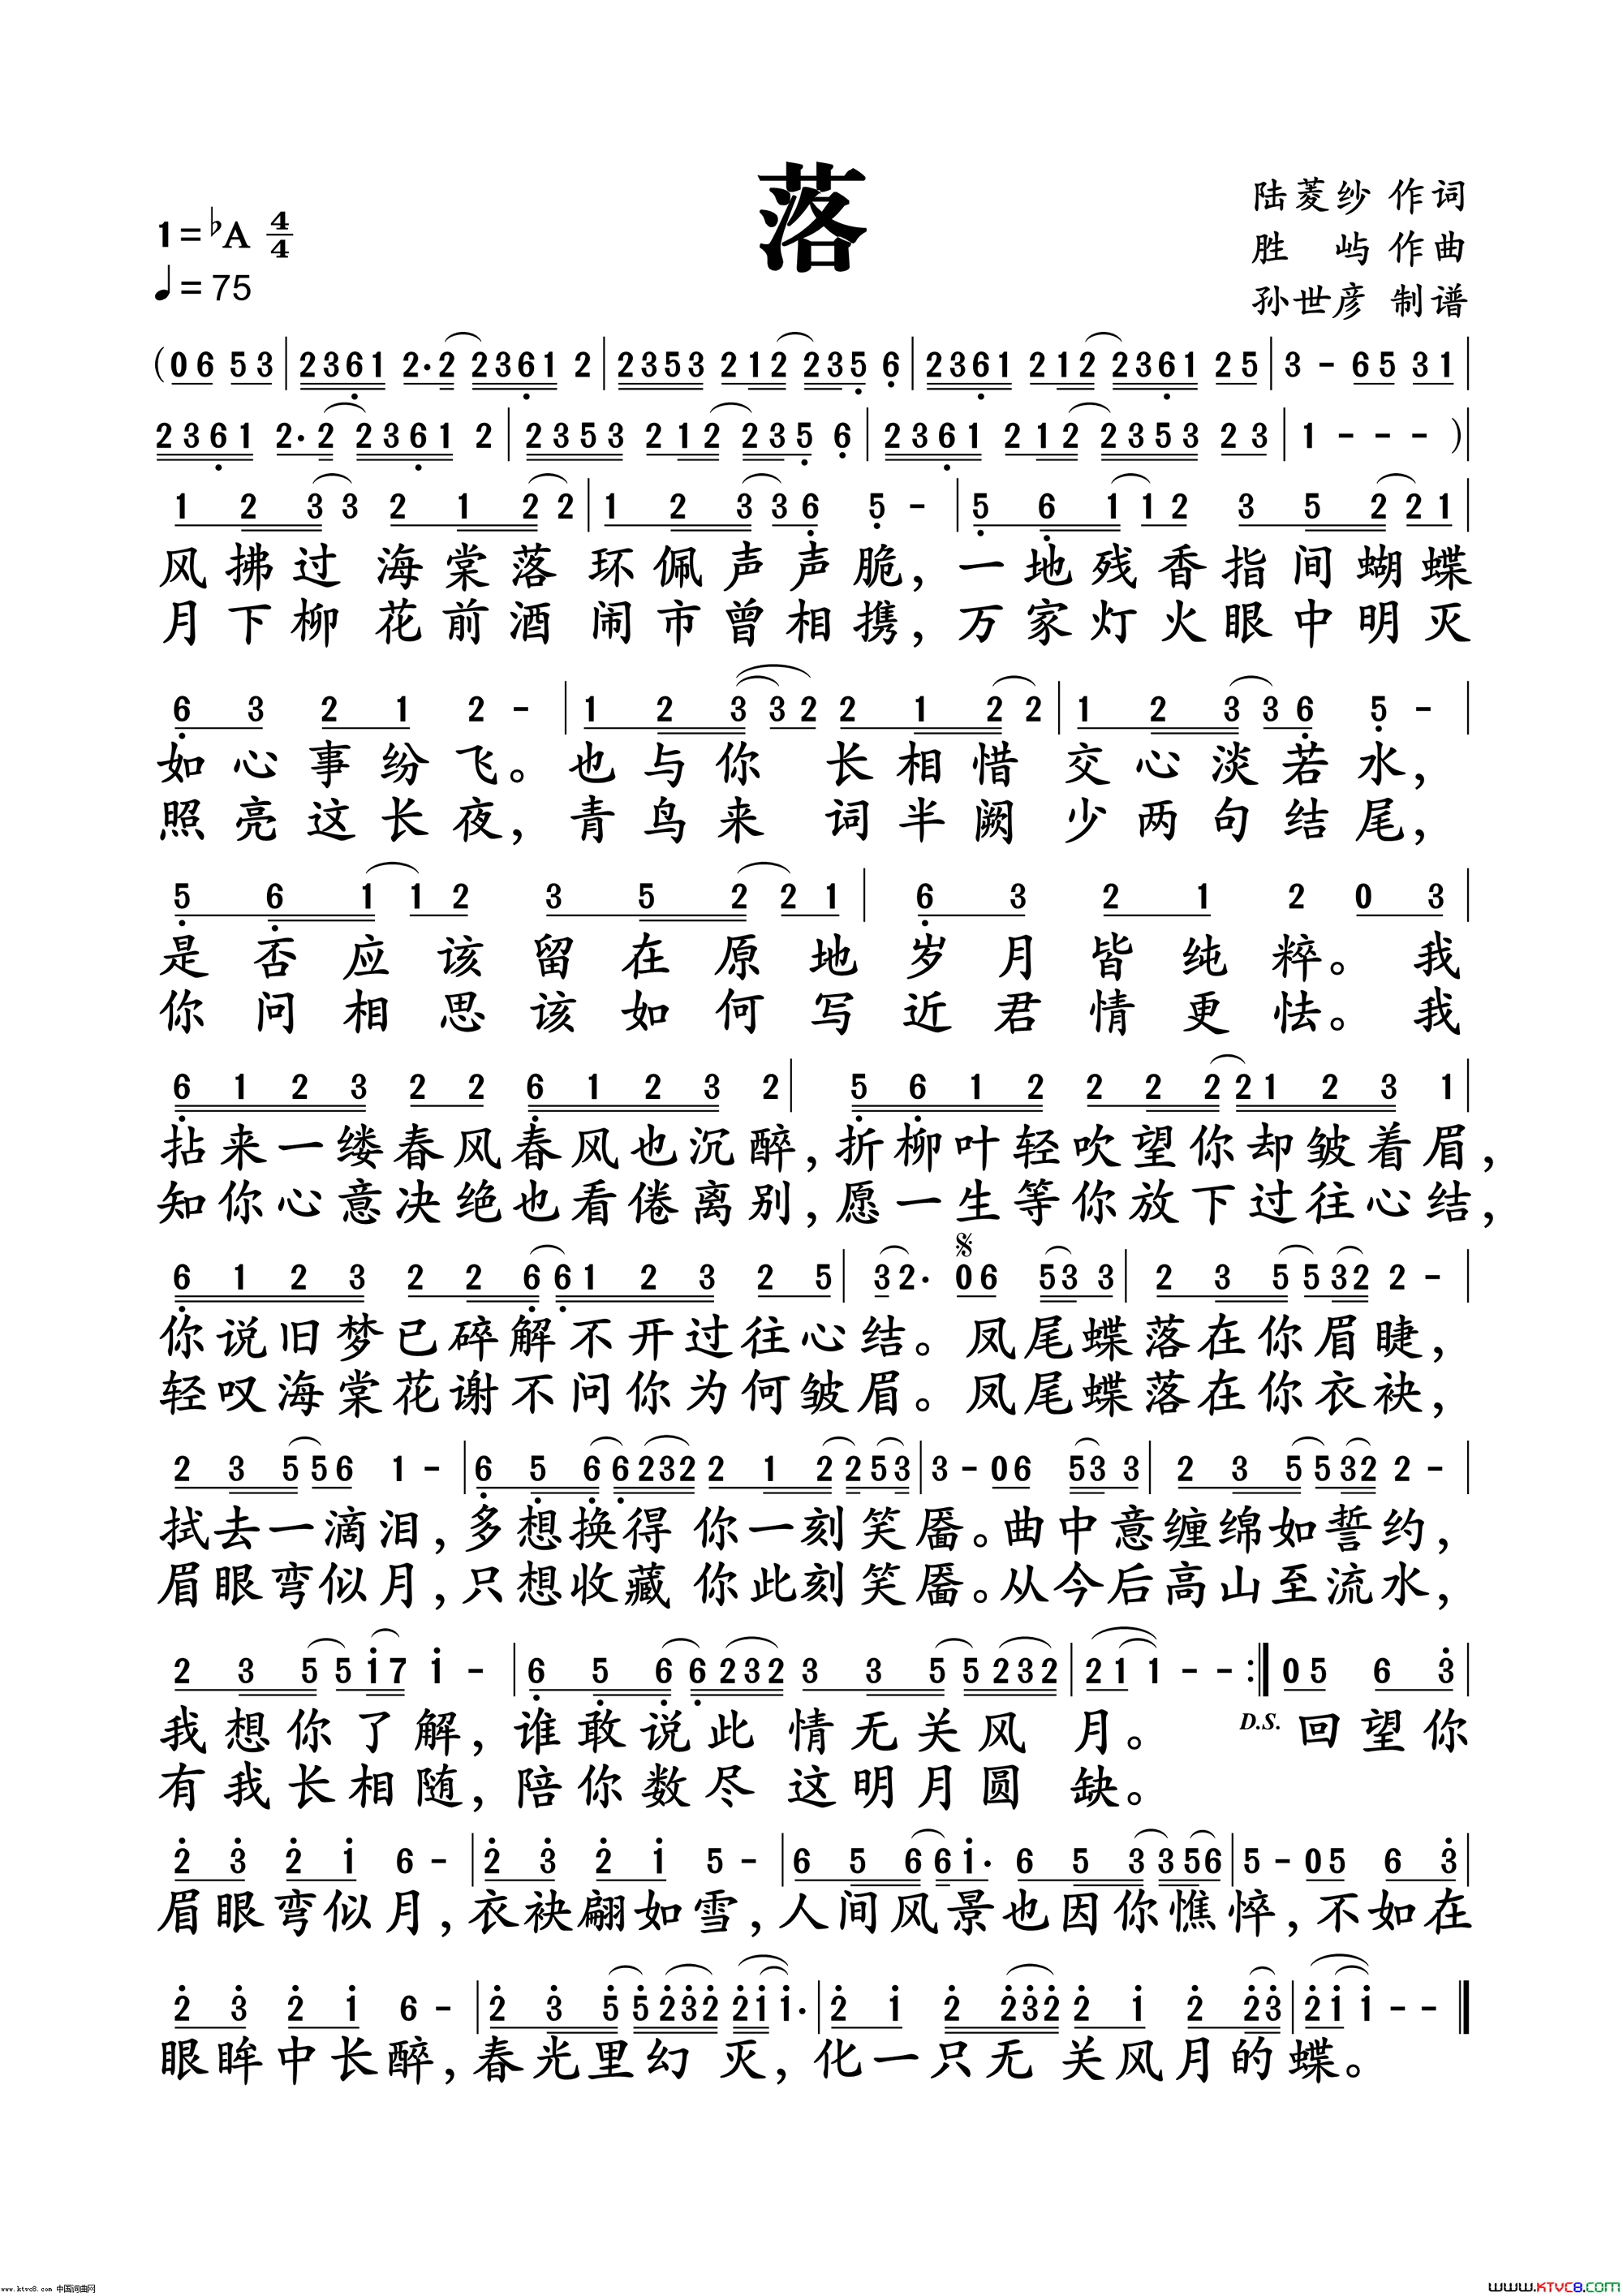 落
1=♭A 4/4
♩=75
陆菱纱 作词
胜 屿 作曲
孙世彦 制谱
(0 6 5 3 | 2 3 6 1 2· 2 2 3 6 1 2 | 2 3 5 3 2 1 2 2 3 5 6 | 2 3 6 1 2 1 2 2 3 6 1 2 5 | 3 - 6 5 3 1 |
2 3 6 1 2· 2 2 3 6 1 2 | 2 3 5 3 2 1 2 2 3 5 6 | 2 3 6 1 2 1 2 2 3 5 3 2 3 | 1 - - - )|
1 2 3 3 2 1 2 2 | 1 2 3 3 6 5 - | 5 6 1 1 2 3 5 2 2 1 |
风拂过海棠落环佩声声脆,一地残香指间蝴蝶
月下柳花前酒闹市曾相携,万家灯火眼中明灭
6 3 2 1 2 - | 1 2 3 3 2 2 1 2 2 | 1 2 3 3 6 5 - |
如心事纷飞。也与你 长相惜交心淡若水,
照亮这长夜,青鸟来 词半阙少两句结尾,
5 6 1 1 2 3 5 2 2 1 | 6 3 2 1 2 0 3 |
是否应该留在原地岁月皆纯粹。我
你问相思该如何写近君情更怯。我
6 1 2 3 2 2 6 1 2 3 2 | 5 6 1 2 2 2 2 2 1 2 3 1 |
拈来一缕春风春风也沉醉,折柳叶轻吹望你却皱着眉,
知你心意决绝也看倦离别,愿一生等你放下过往心结,
6 1 2 3 2 2 6 6 1 2 3 2 5 | 3 2· 𝄋 0 6 5 3 3 | 2 3 5 5 3 2 2 - |
你说旧梦已碎解不开过往心结。凤尾蝶落在你眉睫,
轻叹海棠花谢不问你为何皱眉。凤尾蝶落在你衣袂,
2 3 5 5 6 1 - | 6 5 6 6 2 3 2 2 1 2 2 5 3 | 3 - 0 6 5 3 3 | 2 3 5 5 3 2 2 - |
拭去一滴泪,多想换得 你一刻笑靥。曲中意缠绵如誓约,
眉眼弯似月,只想收藏 你此刻笑靥。从今后高山至流水,
2 3 5 5 i 7 i - | 6 5 6 6 2 3 2 3 3 5 5 2 3 2 | 2 1 1 - - :‖ 0 5 6 3 |
我想你了解,谁敢说此 情无关风 月。 D.S. 回望你
有我长相随,陪你数尽 这明月圆 缺。
2 3 2 i 6 - | 2 3 2 i 5 - | 6 5 6 6 i· 6 5 3 3 5 6 | 5 - 0 5 6 3 |
眉眼弯似月,衣袂翩如雪,人间风景也因你憔悴,不如在
2 3 2 i 6 - | 2 3 5 5 2 3 2 2 i i· | 2 i 2 2 3 2 2 i 2 2 3 | 2 i i - - ‖
眼眸中长醉,春光里幻 灭,化一只无 关风月的蝶。
www.ktvc8.com 中国词曲网
WWW.KTVC8.COM